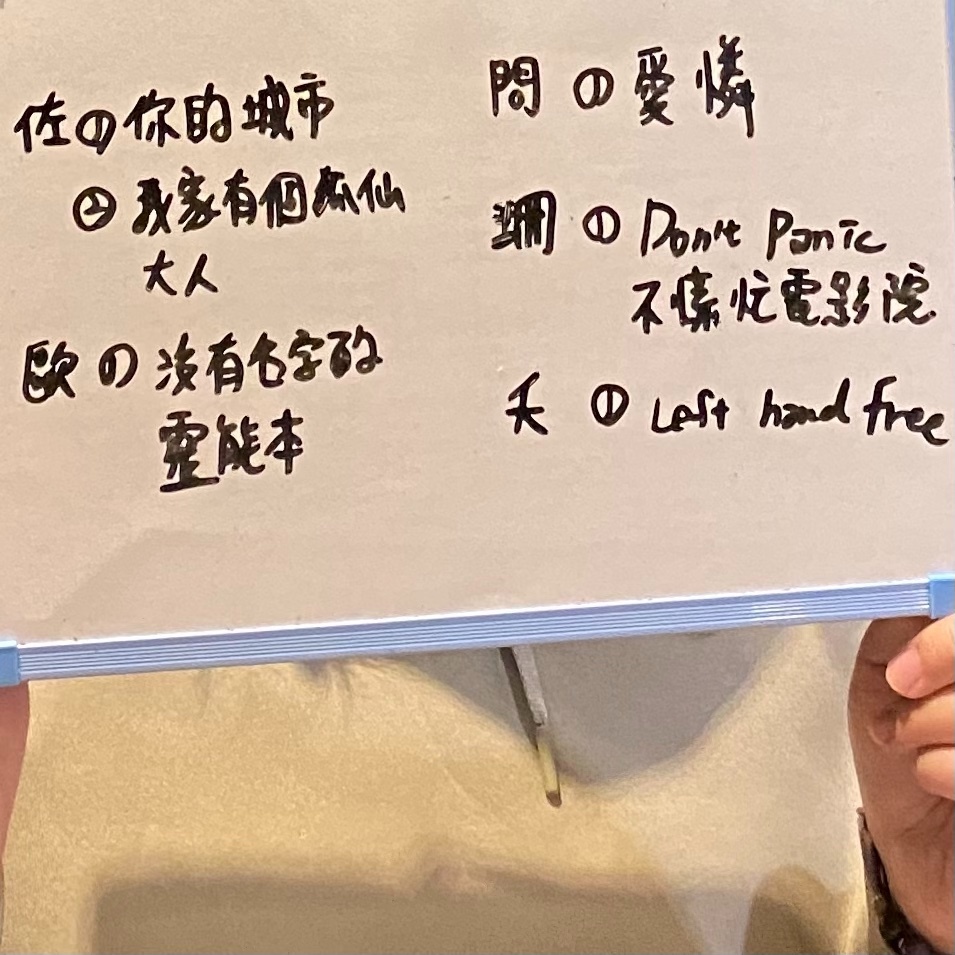 佐①你的城市
②我家有個狐仙
大人
歐①沒有名字的
靈能本
問①愛憐
珊①Don't Panic
不慌忙電影院
天①Left hand free